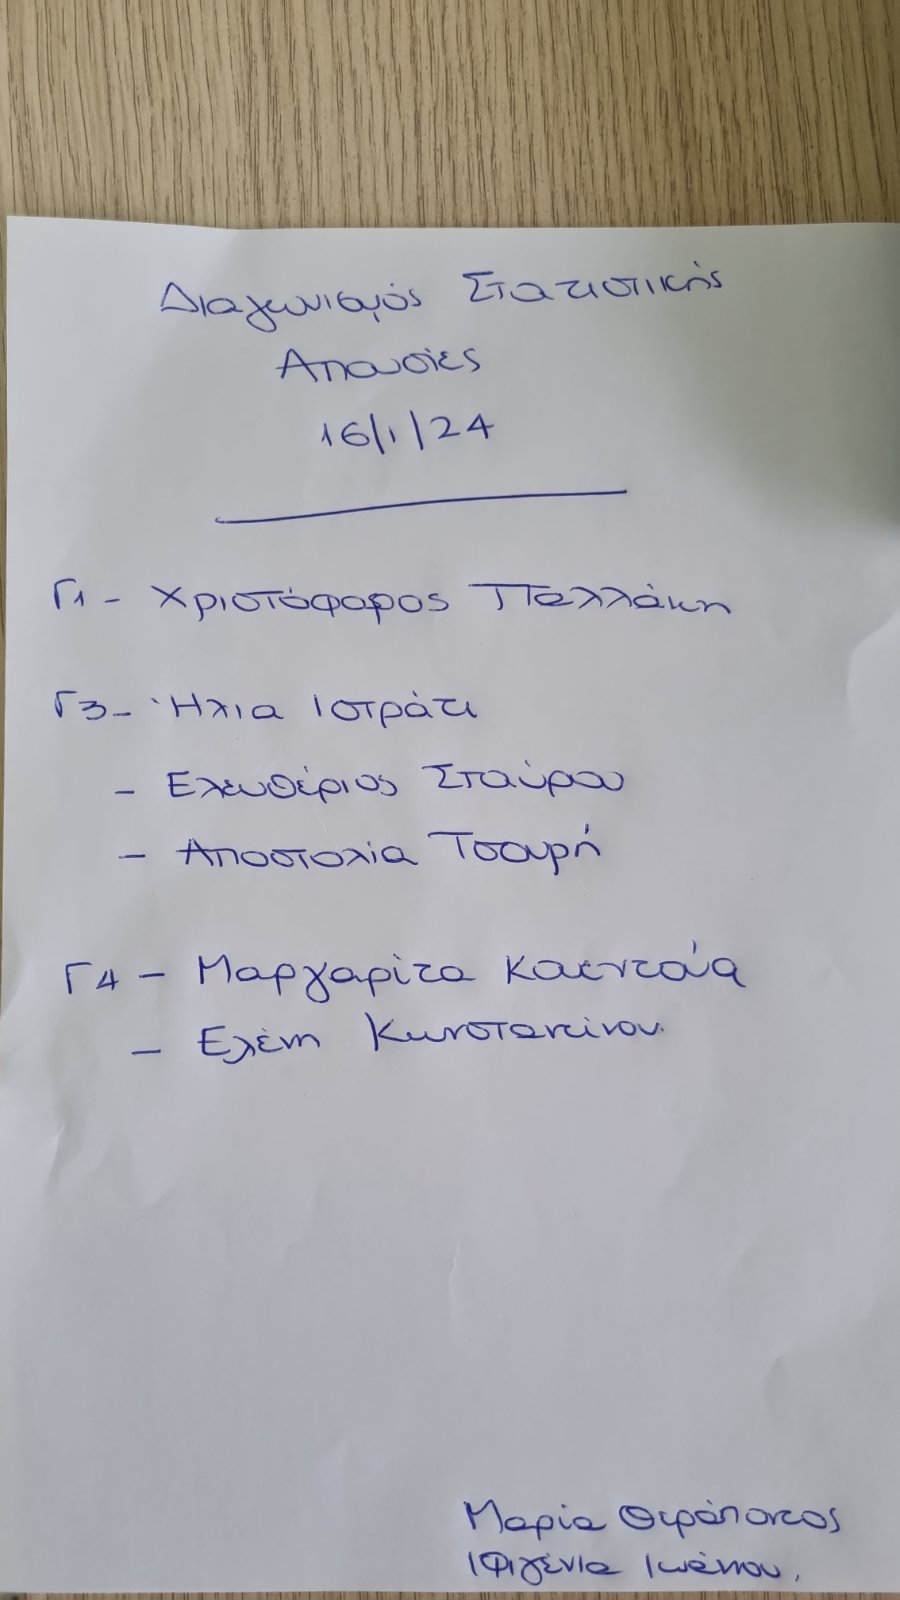 Διαγωνισμός Στατιστικής
Απουσίες
16/1/24
Γ1 - Χριστόφορος Παλλάκη
Γ3 - Ήλια Ιστράτι
- Ελευθέριος Σταύρου
- Αποστολία Τσουρή
Γ4 - Μαργαρίτα
- Ελένη Κωνσταντίνου
Μαρία Θεράποντος
Ιφιγένια Ιωάννου.